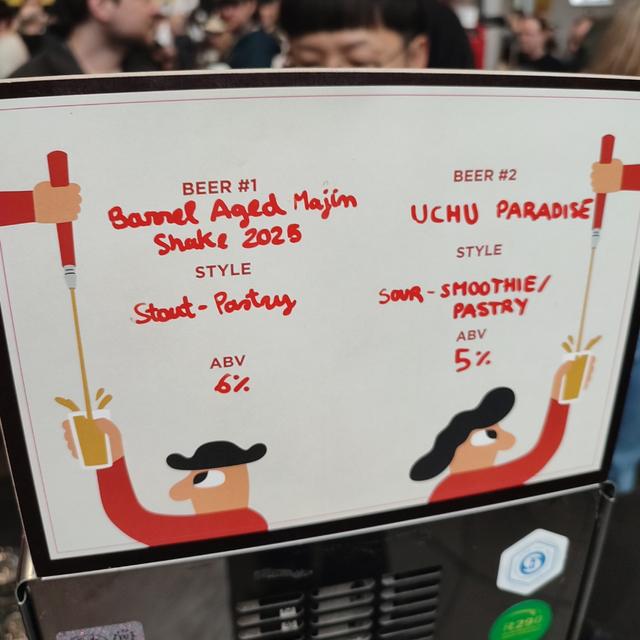 BEER #1
Barrel Aged Majin
Shake 2025
STYLE
Stout - Pastry
ABV
6%
BEER #2
UCHU PARADISE
STYLE
SOUR - SMOOTHIE/
PASTRY
ABV
5%
R290